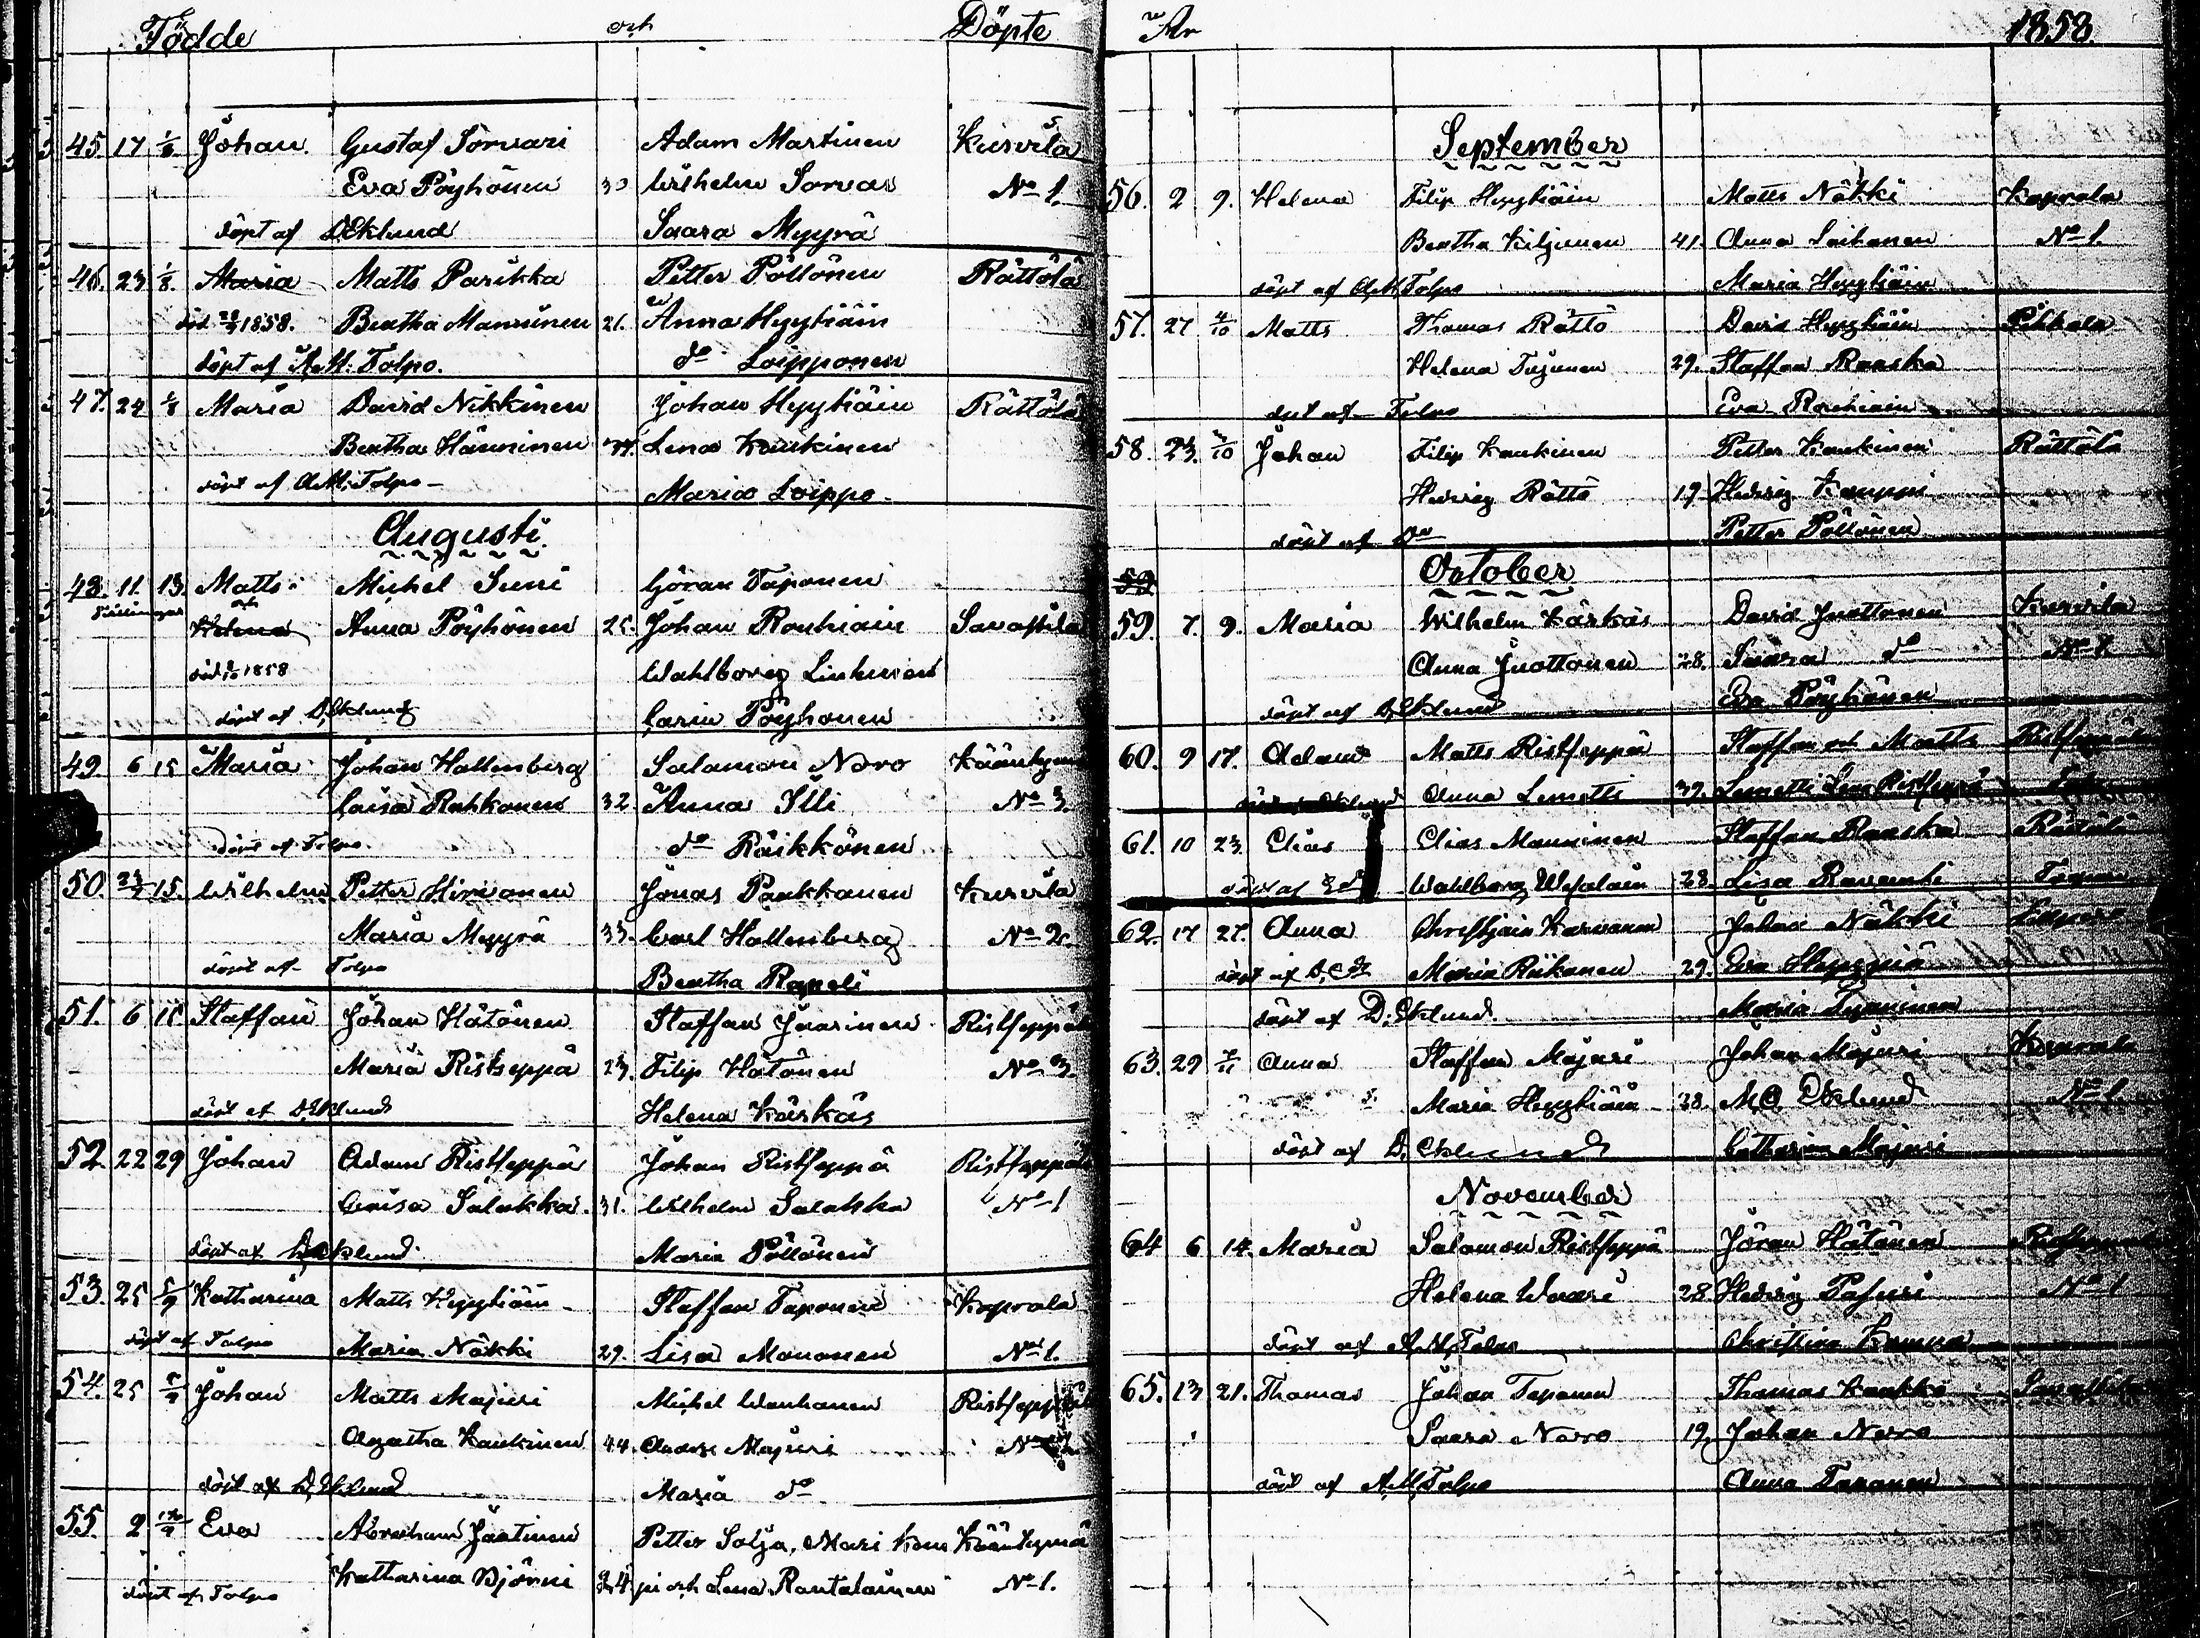 Födde och Döpte
45. 17 1/8. Johan. Gustaf Sorvari Adam Martinen Kurvila
Eva Pöyhönen 30 Wilhelm Sorvar No 1.
döpt af D. Eklund Saara Myyrä
46. 23 1/8. Maria Matts Parikka Petter Pöllönen Rättölä
död 1858. Beatha Manninen 21. Anna Hyytiäin
döpt af A. M. Tolpo. do Loipponen
47. 24 1/8 Maria David Nikkinen Johan Hyytiäin Rättölä
Beatha Hänninen 37. Lena Kaukinen
döpt af A. M. Tolpo Maria Loippo
Augusti.
48. 11. 13. Matts Michel Suni Göran Taponen
Tvillingar och
Helena Anna Pöyhönen Johan Rouhiain
död 1858 Wahlborg
döpt af D. Eklund Carin Pöyhönen
49 6 15 Maria Johan Hallenberg Salamon Noro
Caisa Rahkonen 32. Anna Illi No 3.
döpt af Tolpo do Räikkönen
50. 15. Wilhelm Petter Hirvonen Jonas Paukkunen Kurvila
Maria Myyrä 33. Carl Hallenberg No 2.
döpt af Tolpo Beatha Rapeli
51. 6 15 Staffan Johan Hätönen Staffan Juurinen Ristseppälä
Maria Ristseppä 23. Filip Hätönen No 3.
döpt af D. Eklund Helena Kärkäs
52. 22 29 Johan Adam Ristseppä Johan Ristseppä Ristseppälä
Caisa Salakka 31. Wilhelm Salakka No 1
döpt af D. Eklund Maria Pöllönen
53. 25 5/9 Katharina Matts Hyytiäin Staffan Taponen Kaprala
döpt af Tolpo Maria Näkki 29. Lisa Mononen No 1.
54. 25 5/9 Johan Matts Majuri Michel Wanhanen Ristseppälä
Agatha Kaukinen 44. Anders Majuri
döpt af D. Eklund Maria do
55. 2 Eva Abraham Jäntinen Petter Solja, Mari Kam Kääntymä
döpt af Tolpo Katharina Björni 24 pi och Lena Rantalainen No 1.
År 1858.
September
56. 2 9. Helena Filip Hyytiäin Matts Näkki Kaprala
Beatha Kiljunen 41. Anna Loikanen No 1.
döpt af A. M. Tolpo Maria Hyytiäin
57. 27 4/10 Matts Thomas Rättö David Hyytiäin Pihkala
Helena Tujunen 29. Staffan Ranska
döpt af Tolpo Eva Rouhiain
58. 23. Johan Filip Kaukinen Petter Kaukinen Rättölä
Hedvig Rättö 19. Hedvig Kamppi
döpt af Do Petter Pöllönen
59 October
59. 7. 9. Maria Wilhelm Kärkäs David Juottonen Kurvila
Anna Juottonen 28. Saara do
döpt af D. Eklund Eva Pöyhönen
60. 9 17. Adam Matts Ristseppä Staffan och Matts
Anna Lemetti 39. Lemetti Lena Ristseppä
61. 10 23. Elias Elias Manninen Staffan Ranska Rättölä
döpt af Wahlborg 28. Lisa
62. 17 27. Anna Christjain Karvanen Johan Näkki
döpt af D. E. Maria Riikonen 29. Eva
döpt af D. Eklund. Maria
63. 29 7/11 Anna Staffan Majuri Johan Majuri Kaprala
Maria Hyytiäin 28. Eklund No 1.
döpt af D. Eklund Catharina Majuri
November
64 6 14. Maria Salamon Ristseppä Jöran Hätönen
Helena 28. Hedvig Pasuri No 1
döpt af A. M. Tolpo Christina
65. 13 21. Thomas Johan Taponen Thomas Kaukko
Saara Noro 19. Johan Noro
döpt af A. M. Tolpo Anna Taponen